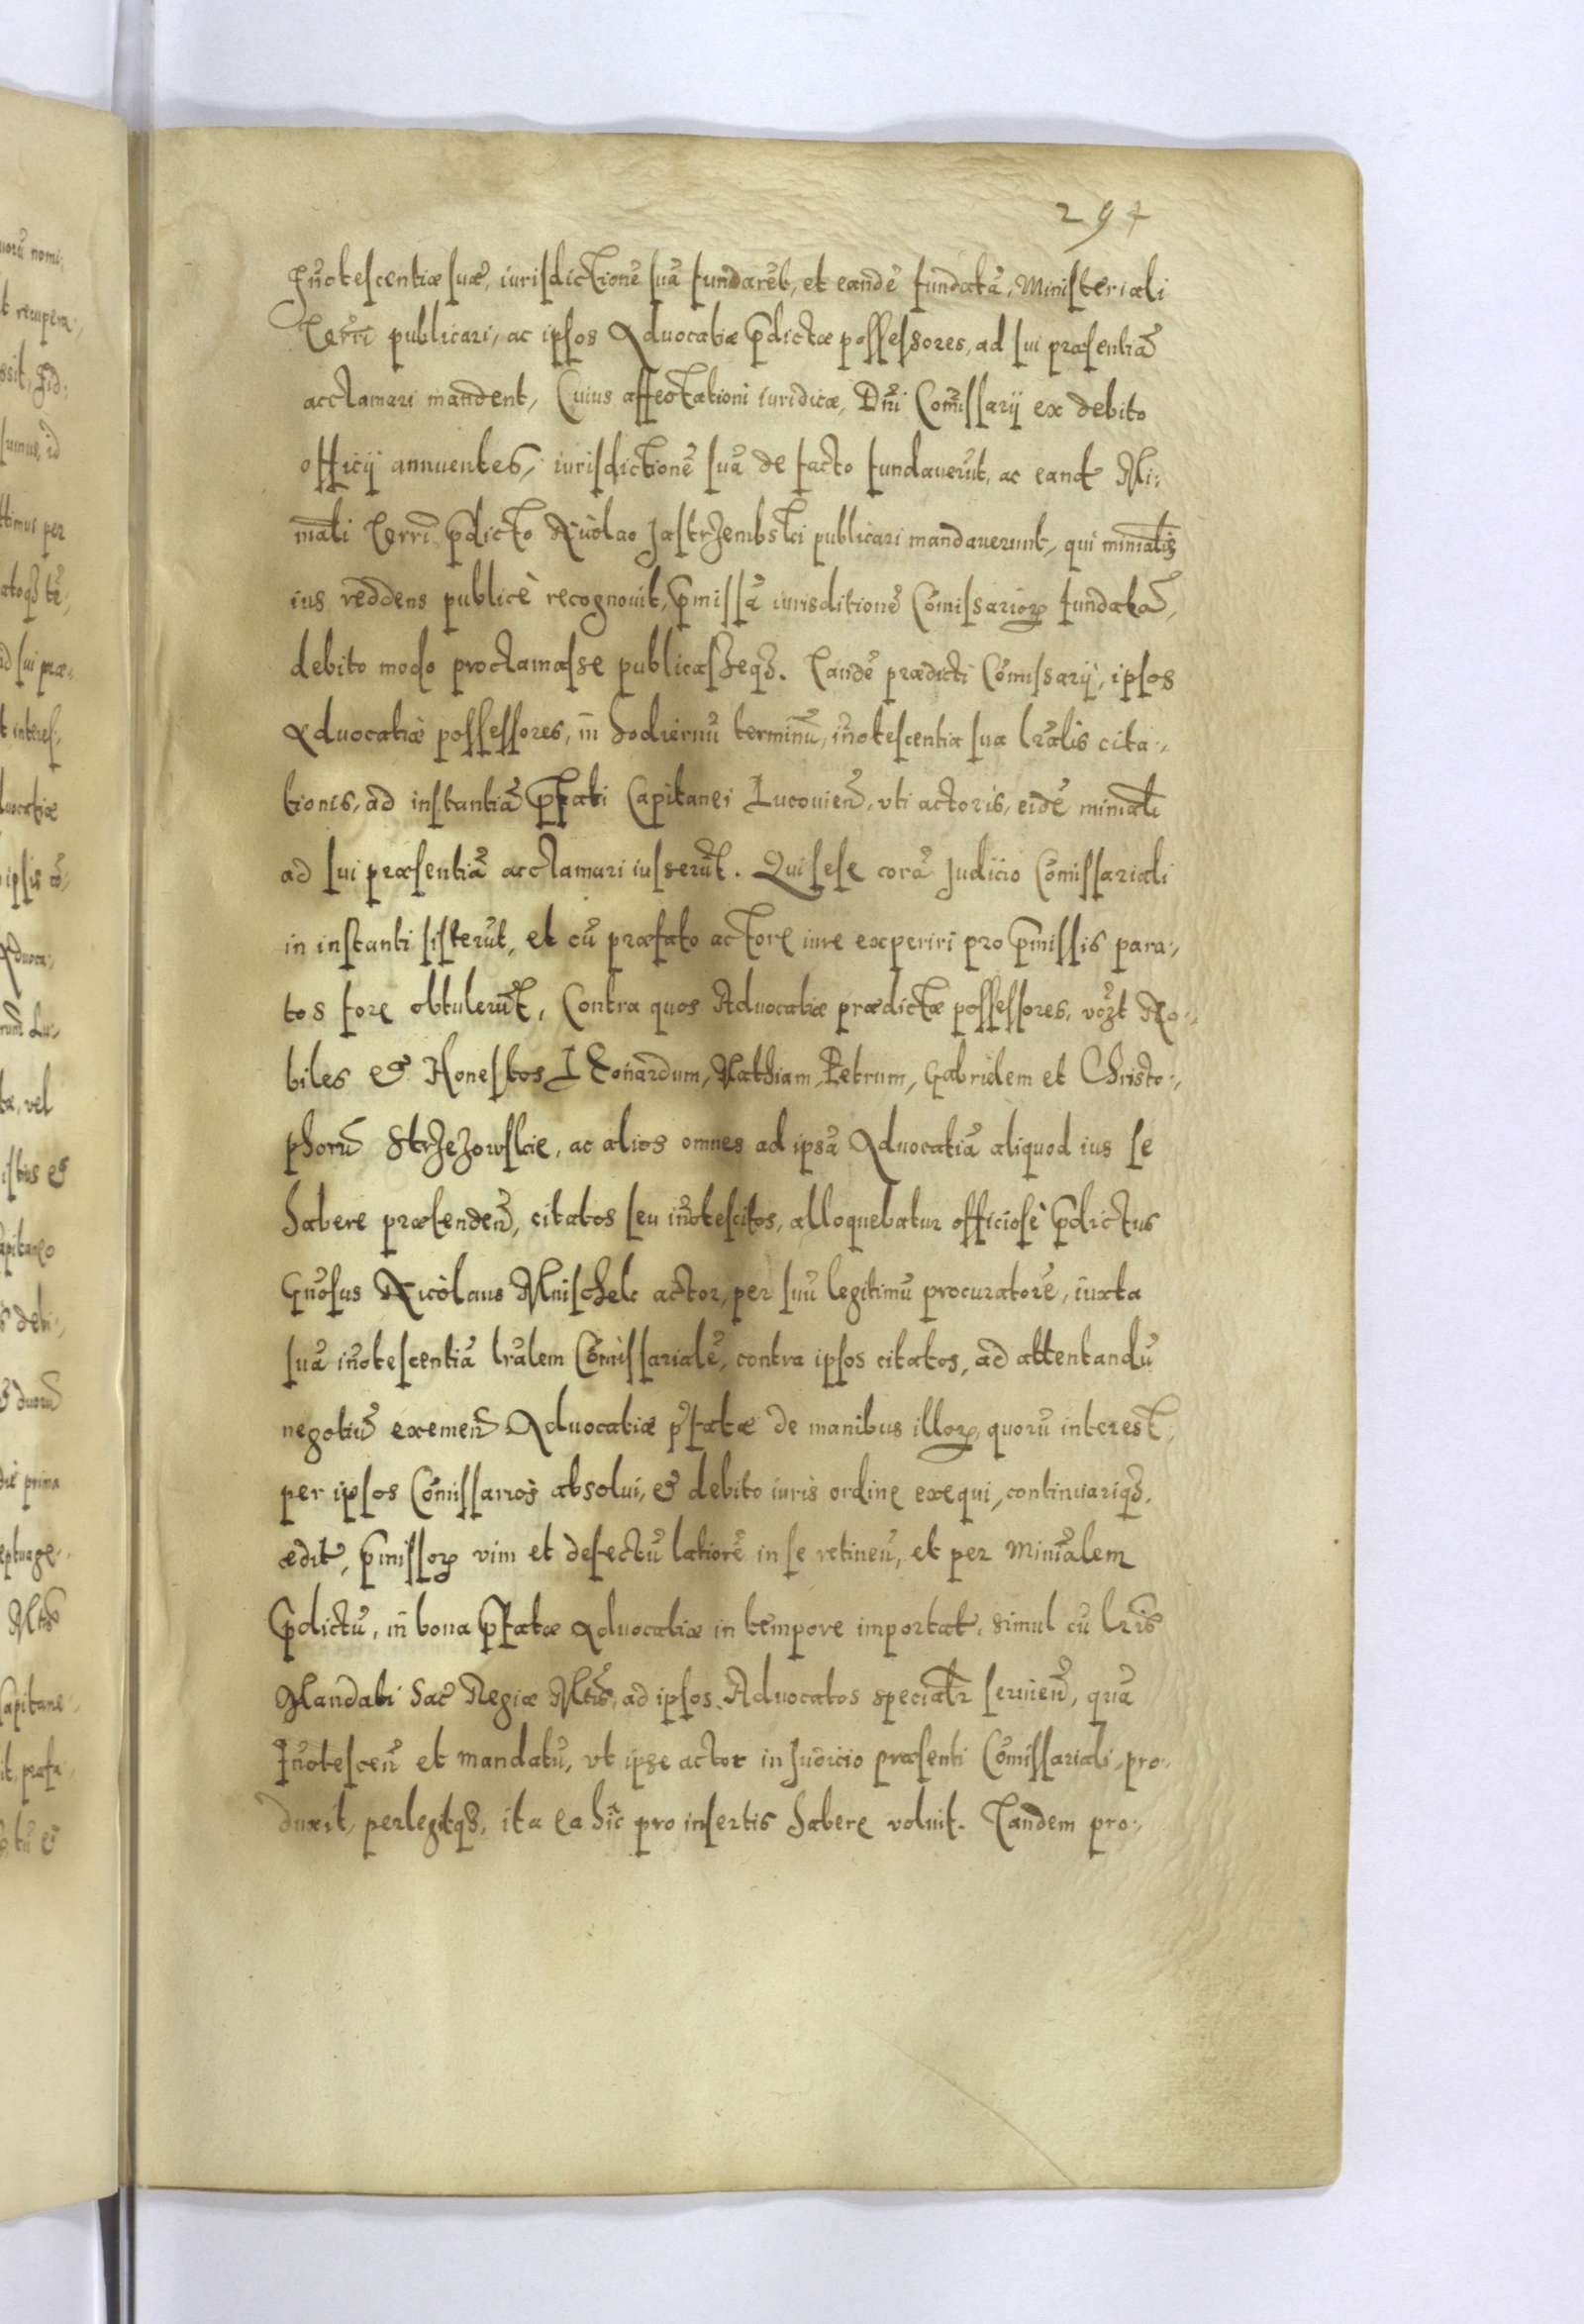 297
Jn̄otescentiæ suæ, iurisdictionē suā fundarēt, et eandē fundatā, Ministeriali
Terri publicari, ac ipsos Aduocatiæ p̄dictæ possessores, ad sui præsentiā
acclamari mandent, Cuius affectationi iuridicæ, Dn̄i Com̄issarij ex debito
officij annuentes, iurisdictionē suā de facto fundauerūt, ac eand Mi:
niali Terri p̄dicto Nicolao Jastrzembski publicari mandauerunt, qui minialis
ius reddens publicè recognouit, p̄missā iurisditionē Com̄issarioꝝ fundatā,
debito modo proclamasse publicasseqꝫ. Tandē prædicti Com̄issarij, ipsos
Aduocatiæ possessores, in hodiernū terminū, in̄otescentiæ suæ lr̄alis cita:,
tionis, ad instantiā p̄fati Capitanei Lucouieñ, vti actoris, eidē miniali
ad sui præsentiā acclamari iusserūt. Qui sese corā Judicio Com̄issariali
in instanti sisterūt, et cū præfato actore iure experiri pro p̄missis para:,
tos fore obtulerūt, Contra quos Aduocatiæ prædictæ possessores, vꝫt No:,
biles & Honestos Leonardum, Mathiam, Petrum, Gabrielem et Christo:,
phorū Strzezowskie, ac alios omnes ad ipsā Aduocatiā aliquod ius se
habere prætendeñ, citatos seu in̄otescitos, alloquebatur officiosè p̄dictus
Gn̄osus Nicolaus Mnischek actor, per suū legitimū procuratorē, iuxta
suā in̄otescentiā lr̄alem Com̄issarialē, contra ipsos citatos, ad attentandū
negotiū exemeñ Aduocatiæ p̄fatæ de manibus illoꝝ, quorū interest,
per ipsos Com̄issarios absolui, & debito iuris ordine exequi, continuariqꝫ.
ædit, p̄missoꝝ vim et defectū latiorē in se retineñ, et per Minialem
p̄dictū, in bona p̄fatæ Aduocatiæ in tempore importat, simul cū lr̄is
Mandati Sac̄ Regiæ Mt̄is, ad ipsos Advocatos specialr seruieñ, quā
Jn̄otesceñ et mandatū, vt ipse actor in Judicio præsenti Com̄issariali, pro:
duxit, perlegitqꝫ, ita ea hic pro insertis habere voluit. Tandem pro:,